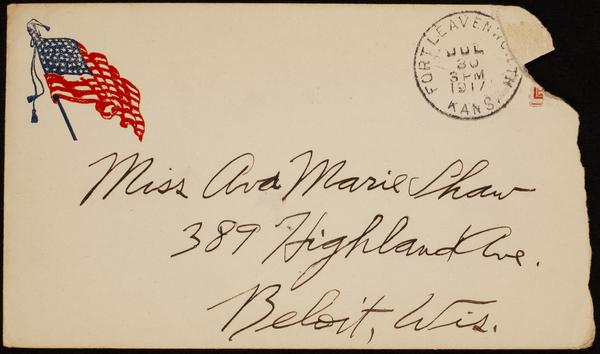 FORT LEAVENWORTH
JUL
30
3 PM
1917
KANS.
Miss Ava Marie Shaw
389 Highland Ave.
Beloit, Wis.